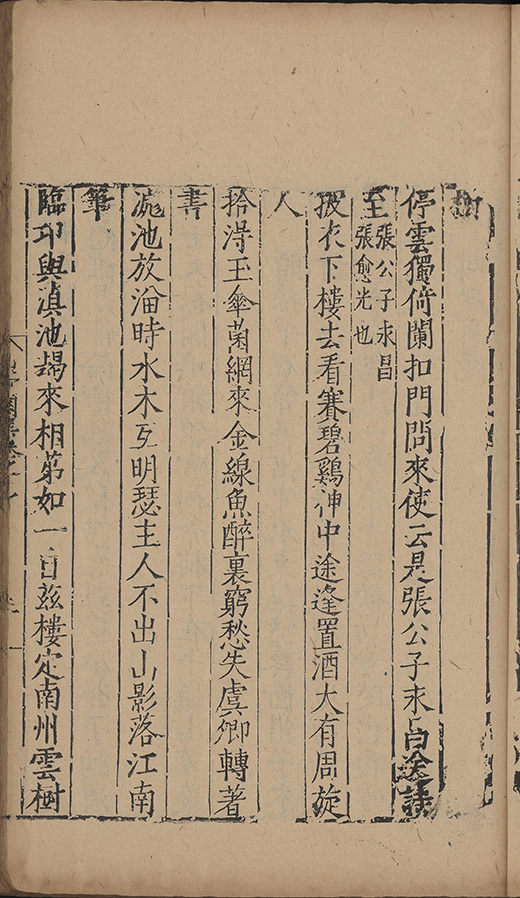 停雲獨倚闌扣門問來使云是張公子永昌送詩
至張公子永昌
張愈光也
披衣下樓去看賽碧鷄神中途逢置酒大有周旋
人
拾淂玉傘菌網來金線魚醉裏窮愁失虞卿轉著
書
滮池放溜時水木互明瑟主人不出山影落江南
筆
臨卭與滇池朅來相第如一日茲樓定南州雲樹